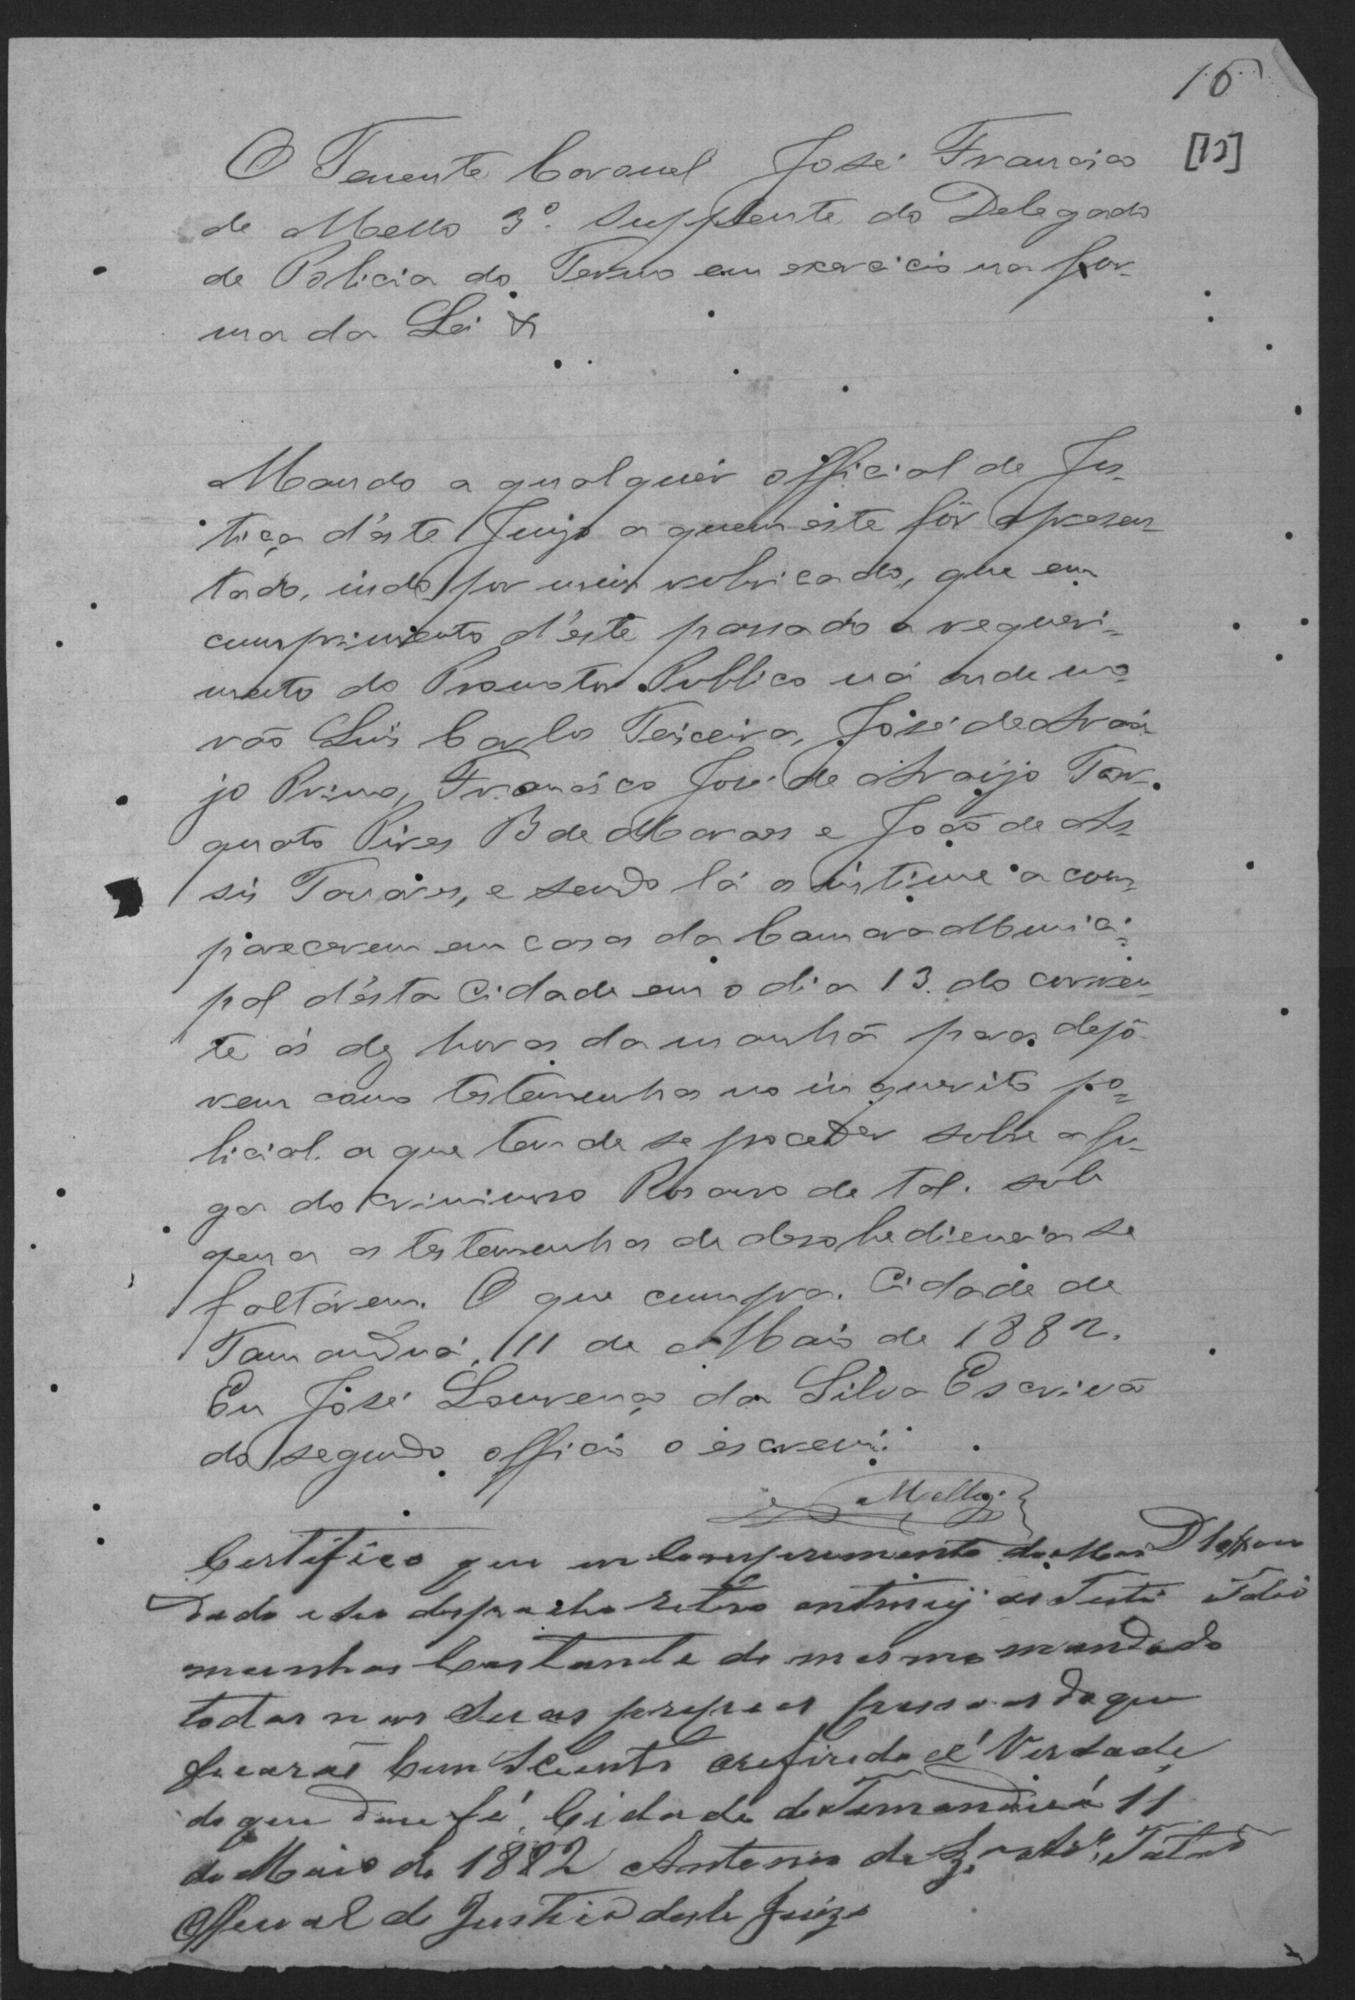 15
[12]
O Tenente Coronel José Francisco
de Mello 3º. Supplente do Delegado
de Policia do Termo em exercicio na for-
ma da Lei &
Mando a qualquer official de Jus-
tiça d'éste Juizo a quem éste fôr apresen-
tado, indo por mim rubricado, que em
cumprimento d'éste passado a requeri-
mento do Promotor Publico vá onde mo-
rão Luis Carlos Teixeira, José de Araú-
jo Primo, Francisco José de Araujo Tor-
quato Pires B de Moraes e João de As-
sis Tavares, e sendo lá os intime a com-
parecerem em casa da Camara Munici-
pal d'ésta Cidade em o dia 13 do corren-
te ás dez horas da manhã para depô-
rem como testemunhas no inquerito po-
licial a que tem de se proceder sobre a fu-
ga do criminoso Rosario de tal. sob
pena as testemunhas de desobediencia se
faltárem. O que cumpra. Cidade de
Tamanduá, 11 de Maio de 1882.
Eu José Lourenço da Silva Escrivão
do segundo officio o escrevi.
Mello
Certifico que em Comprimento do Man
dado e seu despacho retro intimej as Teste
munhas Constante do mesmo mandado
todas nas suas propias pessoas do que
ficarão bem Sciente o referido é Verdade
do que dou fé. Cidade de Tamanduá 11
de Maio de 1882 Antonio de
Official de Justiça deste Juizo